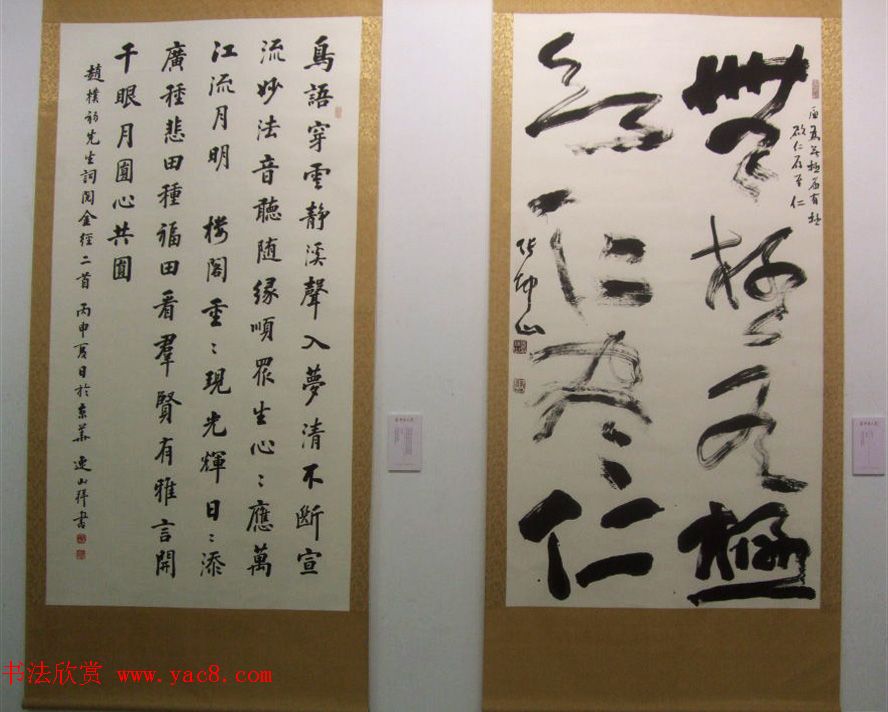 鳥語穿雲静溪聲入夢清不斷宣
流妙法音聽随緣順眾生心〻應萬
江流月明 樓閣重〻現光輝日〻添
廣種悲田種福田看羣賢有雅言開
千眼月圓心共圓
趙樸初先生詞閱金經二首 丙申夏日於京華 連山祥書
無極有極
無仁仁
張坤山
书法欣赏 www.yac8.com